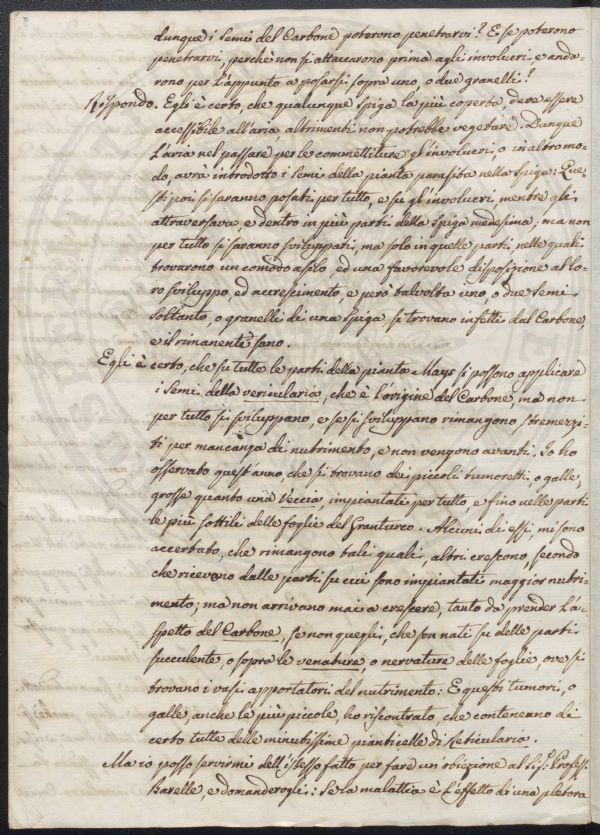 dunque i semi del Carbone poterono penetrarvi? E se poterono
penetrarvi, perchè non si attaccarono prima agli involucri, e anda-
rono per l'appunto a posarsi sopra uno, o due granelli?
Rispondo. Egli è certo, che qualunque spiga la più coperta, deve essere
accessibile all'aria, altrimenti non potrebbe vegetare. Dunque
l'aria nel passare per le commettiture gl'involucri, o in altro mo-
do, avrà introdotto i semi della pianta parasita nella spiga: Que-
sti poi si saranno posati per tutto, e su gl'involucri, mentre gli
attraversava, e dentro in più parti della spiga medesima; ma non
per tutto si saranno sviluppati, ma solo in quelle parti, nelle quali
trovarono un comodo asilo, ed una favorevole disposizione al lo-
ro sviluppo, ed accrescimento, e però talvolta uno, o due semi
soltanto, o granelli di una spiga si trovano infetti dal Carbone,
e il rimanente sano.
Egli è certo, che su tutte le parti della pianta Mays si possono applicare
i semi della , che è l'origine del Carbone, ma non
per tutto si sviluppano, e se si sviluppano rimangono stremenzi-
ti per mancanza di nutrimento, e non vengono avanti. Io ho
osservato quest'anno, che si trovano dei piccoli tumoretti, o galle,
grosse quanto una Veccia, impiantati per tutto, e fino nelle parti
le più sottili delle foglie del Granturco. Alcuni di essi, mi sono
accertato, che rimangono tali quali, altri crescono, secondo
che ricevono dalle parti su cui sono impiantati maggior nutri-
mento; ma non arrivano mai a crescere, tanto da prender l'a-
spetto del Carbone, se non quegli, che son nati su delle parti
succulente, o sopra le venature, o nervature delle foglie, ove si
trovano i vasi apportatori del nutrimento: E questi tumori, o
galle, anche le più piccole, ho riscontrato, che contenenno di
certo tutte delle minutissime pianticelle di Reticularia.
Ma io posso servirmi dell'istesso fatto per fare un'obiezione al Sig.r Profess.r
, e domanderogli: Se la malattia è l'effetto di una pletora